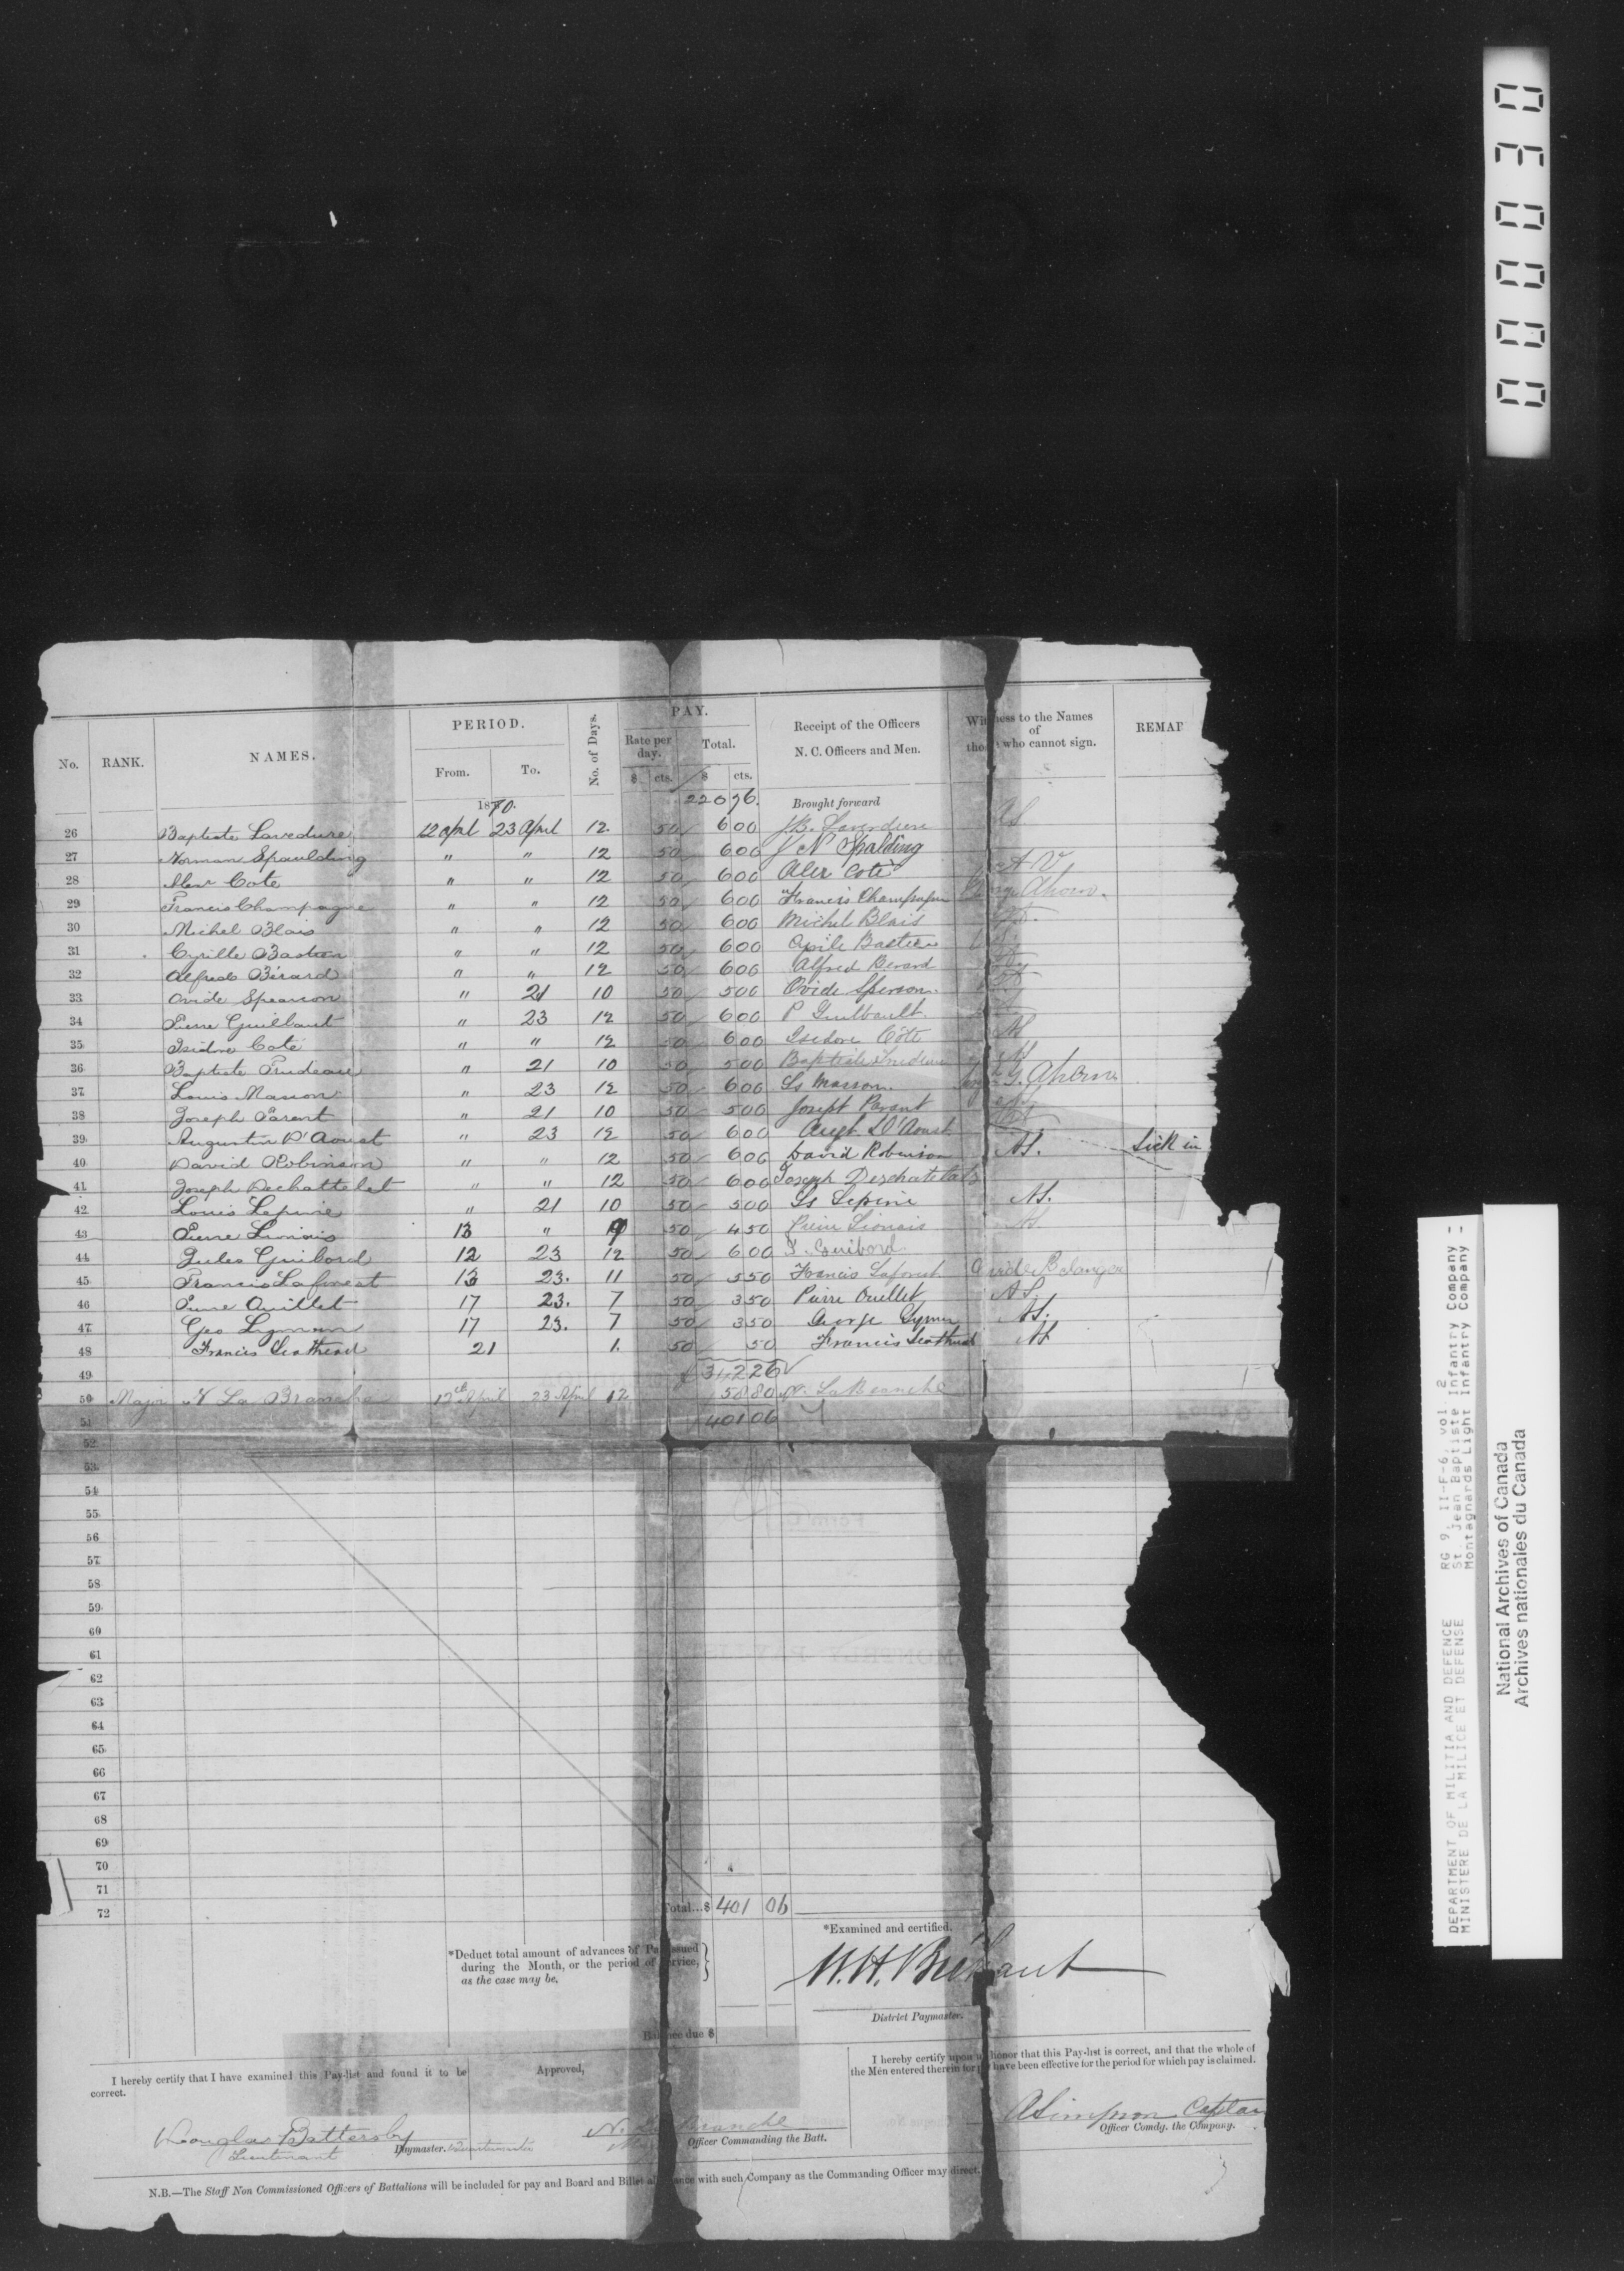 00030
PERIOD.
PAY.
No. RANK. NAMES. From. To. No. of Days. Rate per day. $ cts. Total. $ cts. Receipt of the Officers N. C. Officers and Men. Witness to the Names of those who cannot sign. REMAR
1870. 220 76. Brought forward
26 Baptiste Lavedure 12 april 23 April 12. 50 6 00 J.B. Laverdure AS
27 Norman Spaulding " " 12 50 6 00 J N Spalding
28 Alex Cote " " 12 50 6 00 Alex Coté A V
29 Francis Champagne " " 12 50 6 00 Francis Champagne Ahern.
30 Michel Blais " " 12 50 6 00 Michel Blais
31 Cyrille Bastien " " 12 50 6 00 Bastien
32 Alfred Bérard " " 12 50 6 00 Alfred Berard
33 Ovide Spearson " 21 10 50 5 00 Ovide Sperson
34 Pierre Guilbault " 23 12 50 6 00 P Guilbault
35 Isidore Coté " " 12 50 6 00 Isidore Côté
36 Baptiste Trudeau " 21 10 50 5 00 Baptiste Trudeau
37 Louis Masson " 23 12 50 6 00 Ls Masson G. Ahern
38 Joseph Parent " 21 10 50 5 00 Joseph Parant
39 Augustin D'Aoust " 23 12 50 6 00 Augt D'Aoust
40 David Robinson " " 12 50 6 00 David Robinson AS. Sick in
41 Joseph Dechattelet " " 12 50 6 00 Joseph Deschatelets
42 Louis Lepine " 21 10 50 5 00 Ls Lepine AS.
43 Pierre Lionais 13 " 9 50 4 50 Pierre Lionais AS
44 Jules Guibord 12 23 12 50 6 00 J. Guibord
45 Francis Laforest 13 23. 11 50 5 50 Francis Laforest Ovide Belanger
46 Pierre Ouillet 17 23. 7 50 3 50 Pierre Ouellet AS
47 Geo Lyman 17 23. 7 50 3 50 George Lyman AS.
48 Francis Leathead 21 1. 50 50 Francis Leathead AS
49 342 26
50 Major N La Branche 12th April 23 April 12 58 80 N. LaBranche
51 401 06
52
53
54
55
56
57
58
59
60
61
62
63
64
65
66
67
68
69
70
71
72
Total...$ 401 06
*Deduct total amount of advances of Pay issued
during the Month, or the period of service,
as the case may be.
*Examined and certified,
District Paymaster.
Balance due $
I hereby certify that I have examined this Pay-list and found it to be
correct.
Douglas Battersby
Lieutenant
Paymaster.
Approved,
N. LaBranche
Officer Commanding the Batt.
I hereby certify upon my honor that this Pay-list is correct, and that the whole of
the Men entered therein for pay have been effective for the period for which pay is claimed.
ASimpson Captain
Officer Comdg. the Company.
N.B.—The Staff Non Commissioned Officers of Battalions will be included for pay and Board and Billet allowance with such Company as the Commanding Officer may direct.
DEPARTMENT OF MILITIA AND DEFENCE RG 9, II-F-6, vol. 2
MINISTERE DE LA MILICE ET DEFENSE St. Jean Baptiste Infantry Company -
Montagnards Light Infantry Company -
National Archives of Canada
Archives nationales du Canada